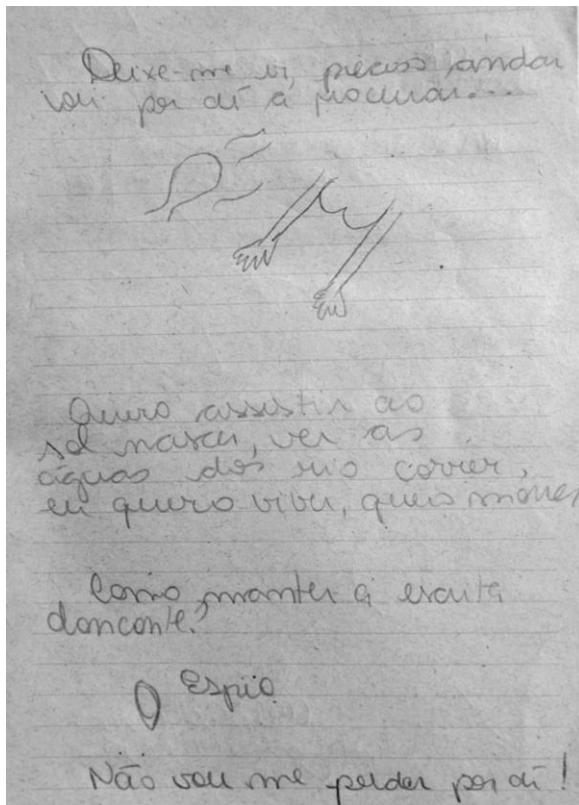 Deixe-me ir, preciso andar
vou por aí a procurar...
Quero assistir ao
sol nascer, ver as
águas dos rio correr,
eu quero viver, quero morrer
Como manter a escrita
dançante?
Espio
Não vou me perder por aí!